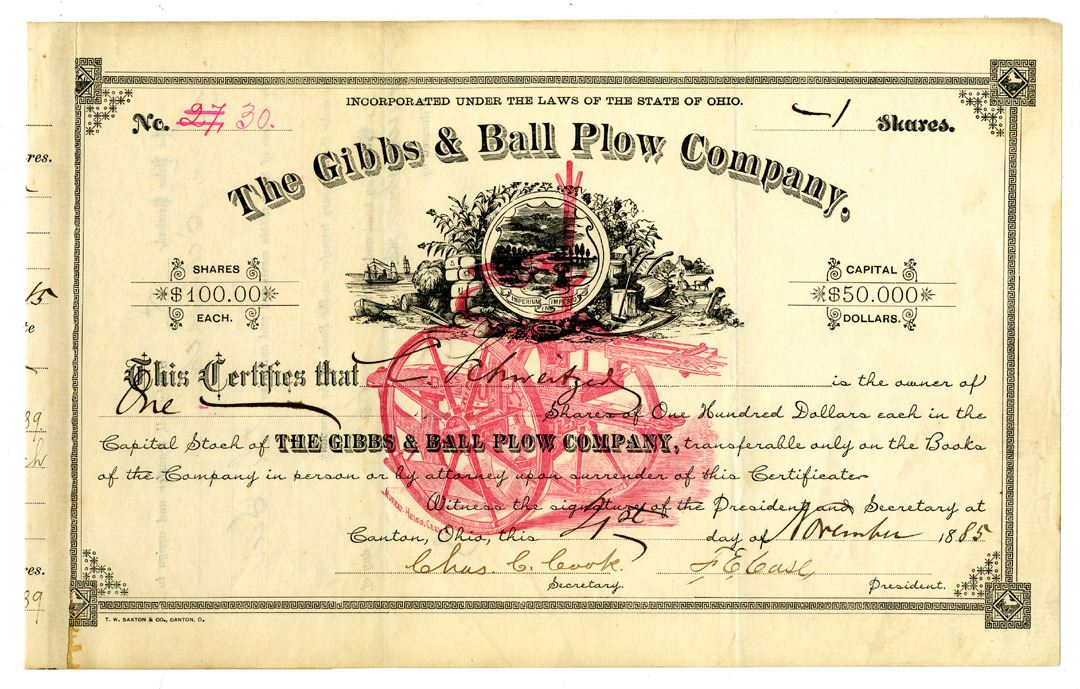 INCORPORATED UNDER THE LAWS OF THE STATE OF OHIO.
No. 27, 30.
1 Shares.
The Gibbs & Ball Plow Company.
SHARES
$100.00
EACH.
CAPITAL
$50.000
DOLLARS.
IMPERIUM IN IMPERIO
This Certifies that C. Schweitzer is the owner of
One Shares of One Hundred Dollars each in the
Capital Stock of THE GIBBS & BALL PLOW COMPANY, transferable only on the Books
of the Company in person or by attorney upon surrender of this Certificate
Witness the signature of the President and Secretary at
Canton, Ohio, this day of November 1885
Chas. C. Cook. F E Case
Secretary. President.
T. W. SAXTON & CO., CANTON, O.
res.
res.
39
39